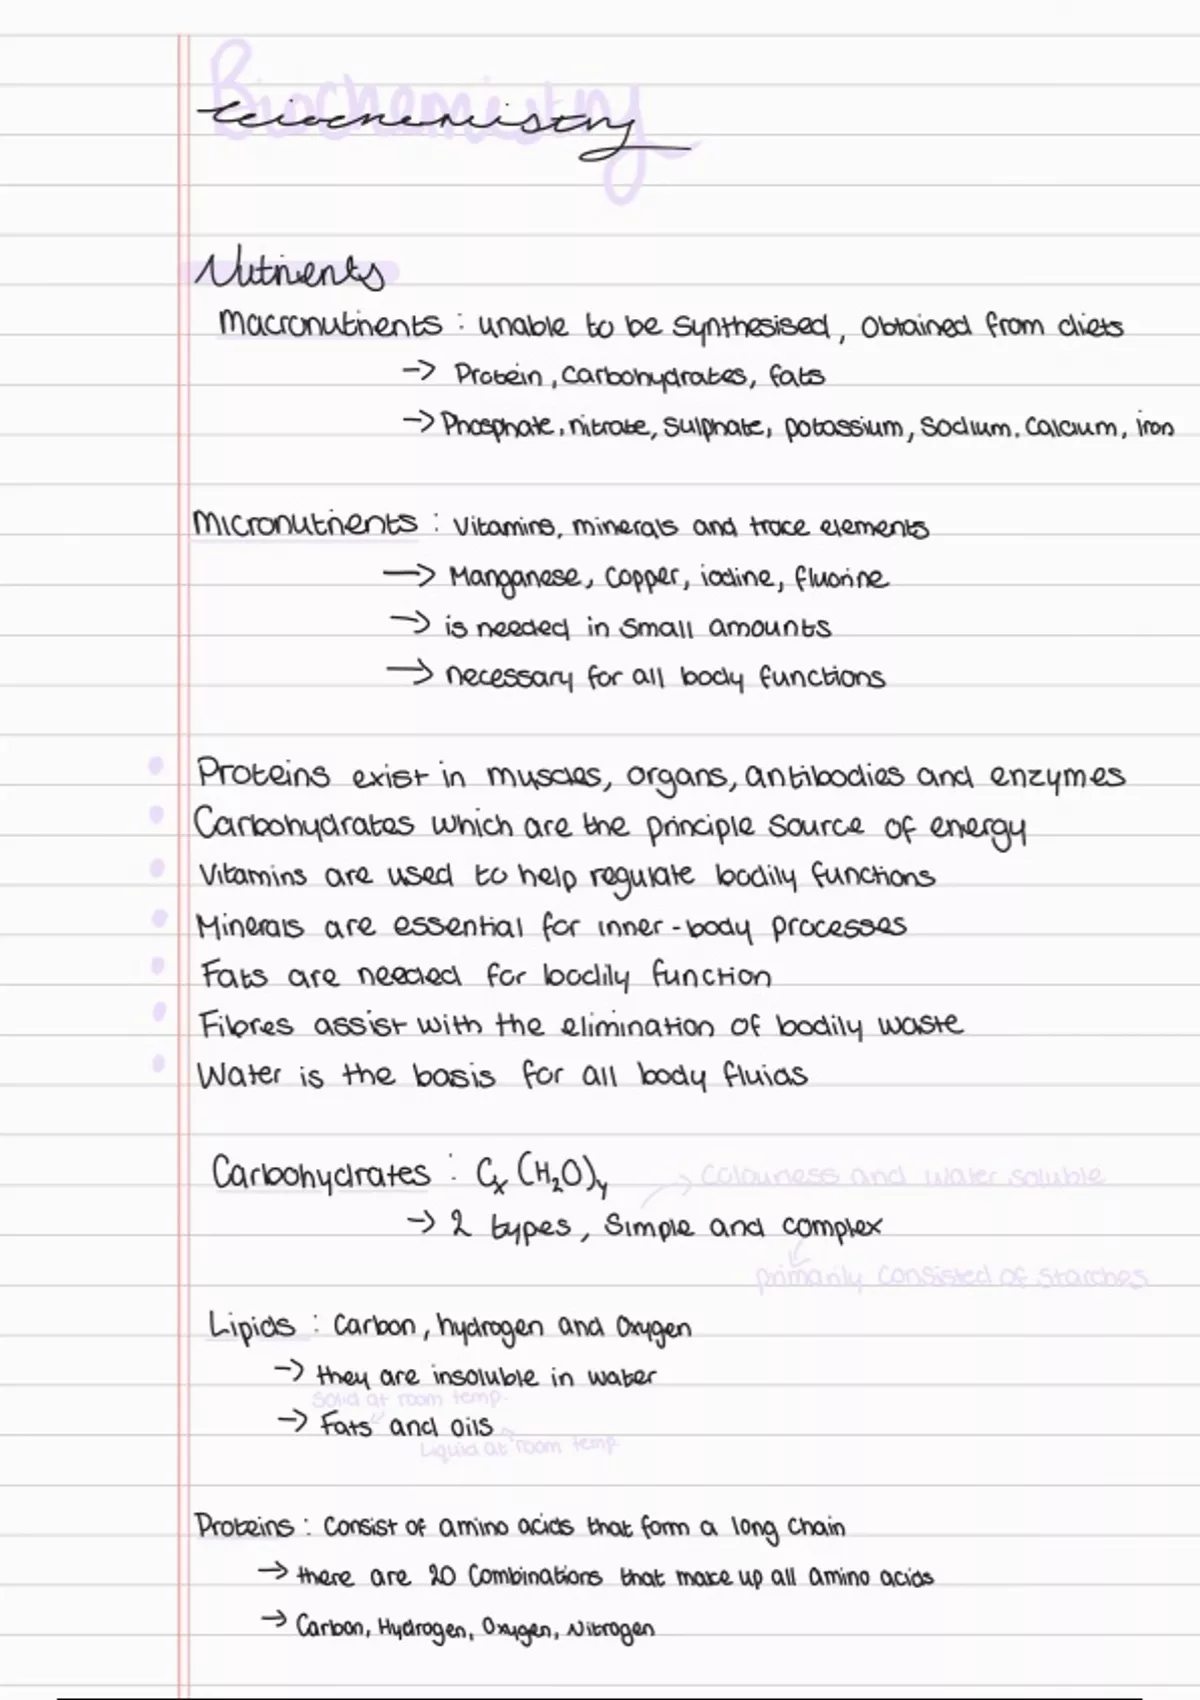 Biochemistry
Biochemistry
Nutrients
Macronutrients : unable to be synthesised, obtained from diets
→ Protein, carbohydrates, fats
→ Phosphate, nitrate, sulphate, potassium, sodium, calcium, iron
Micronutrients : vitamins, minerals and trace elements
→ Manganese, copper, iodine, fluorine
→ is needed in small amounts
→ necessary for all body functions
• Proteins exist in muscles, organs, antibodies and enzymes
• Carbohydrates which are the principle source of energy
• Vitamins are used to help regulate bodily functions
• Minerals are essential for inner-body processes
• Fats are needed for bodily function
• Fibres assist with the elimination of bodily waste
• Water is the basis for all body fluids
Carbohydrates : Cₓ(H₂O)ᵧ → colourless and water soluble
→ 2 types, simple and complex
primarily consisted of starches
Lipids : Carbon, hydrogen and oxygen
→ they are insoluble in water
Solid at room temp.
→ Fats and oils
Liquid at room temp
Proteins : Consist of amino acids that form a long chain
→ there are 20 combinations that make up all amino acids
→ Carbon, Hydrogen, Oxygen, Nitrogen